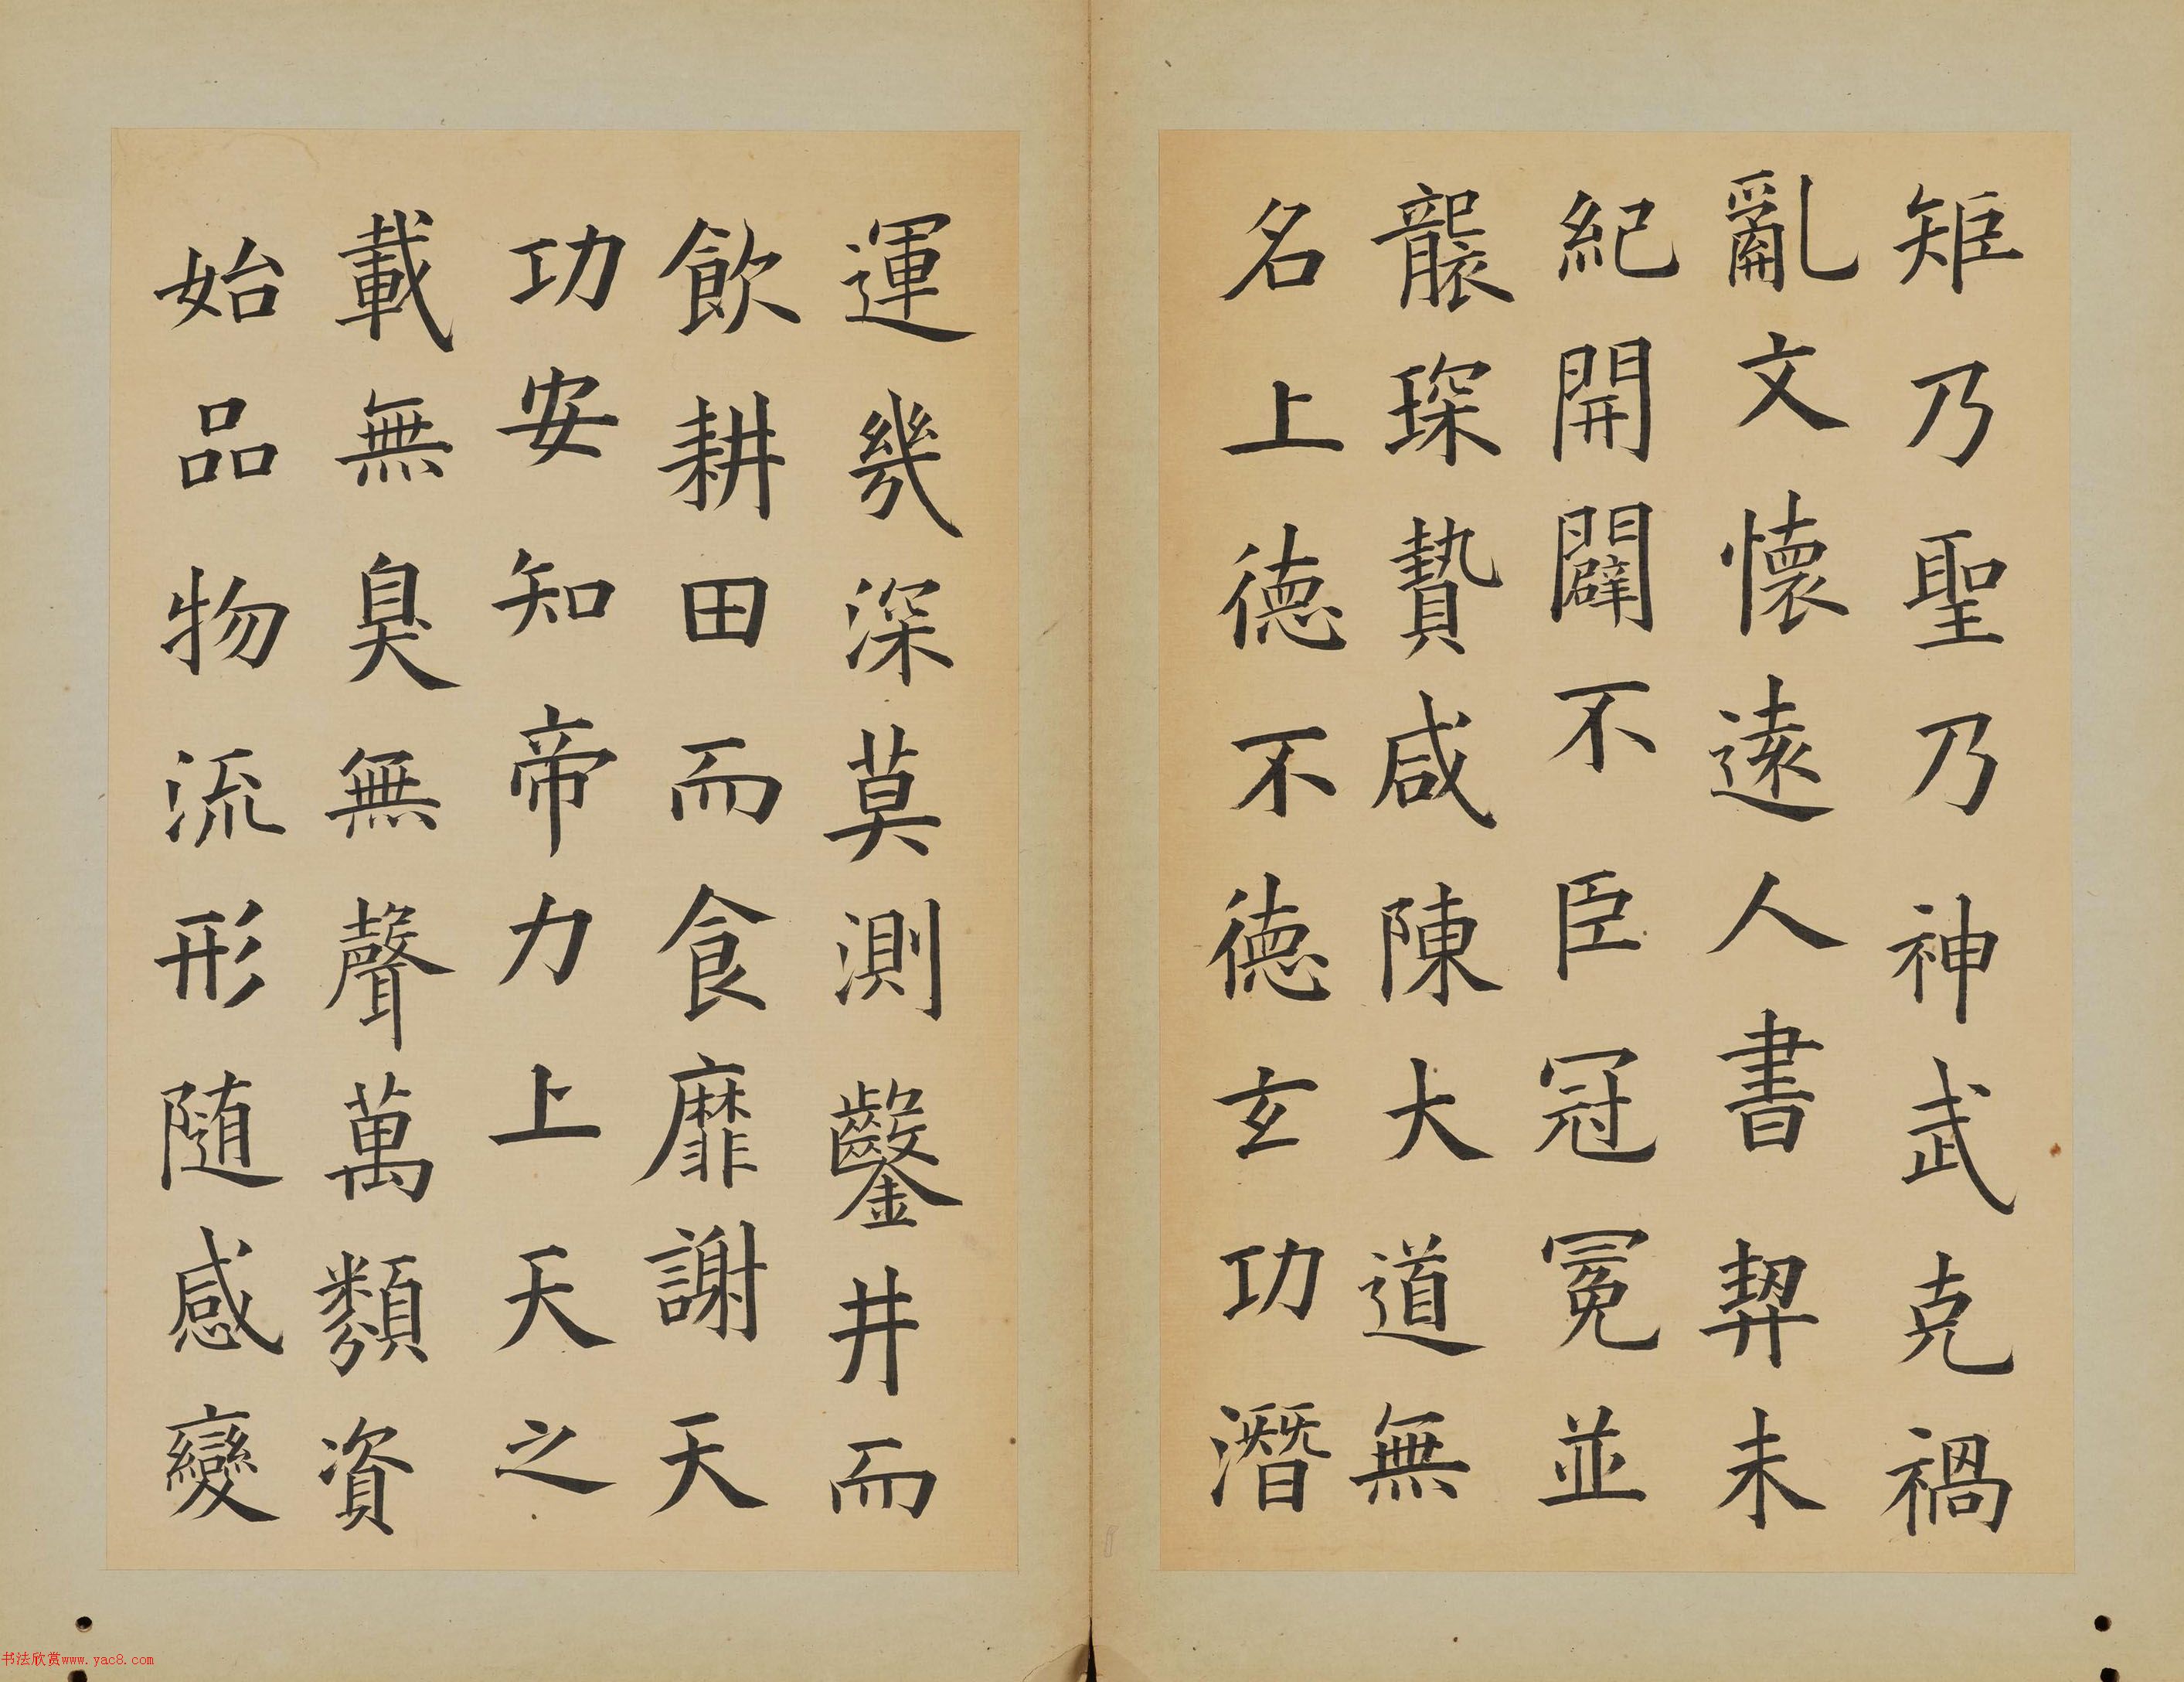 矩乃聖乃神武克禍
亂文懷遠人書契未
紀開闢不臣冠冕並
襲琛贄咸陳大道無
名上德不德玄功潛
運幾深莫測鑿井而
飲耕田而食靡謝天
功安知帝力上天之
載無臭無聲萬類資
始品物流形隨感變
书法欣赏www.yac8.com